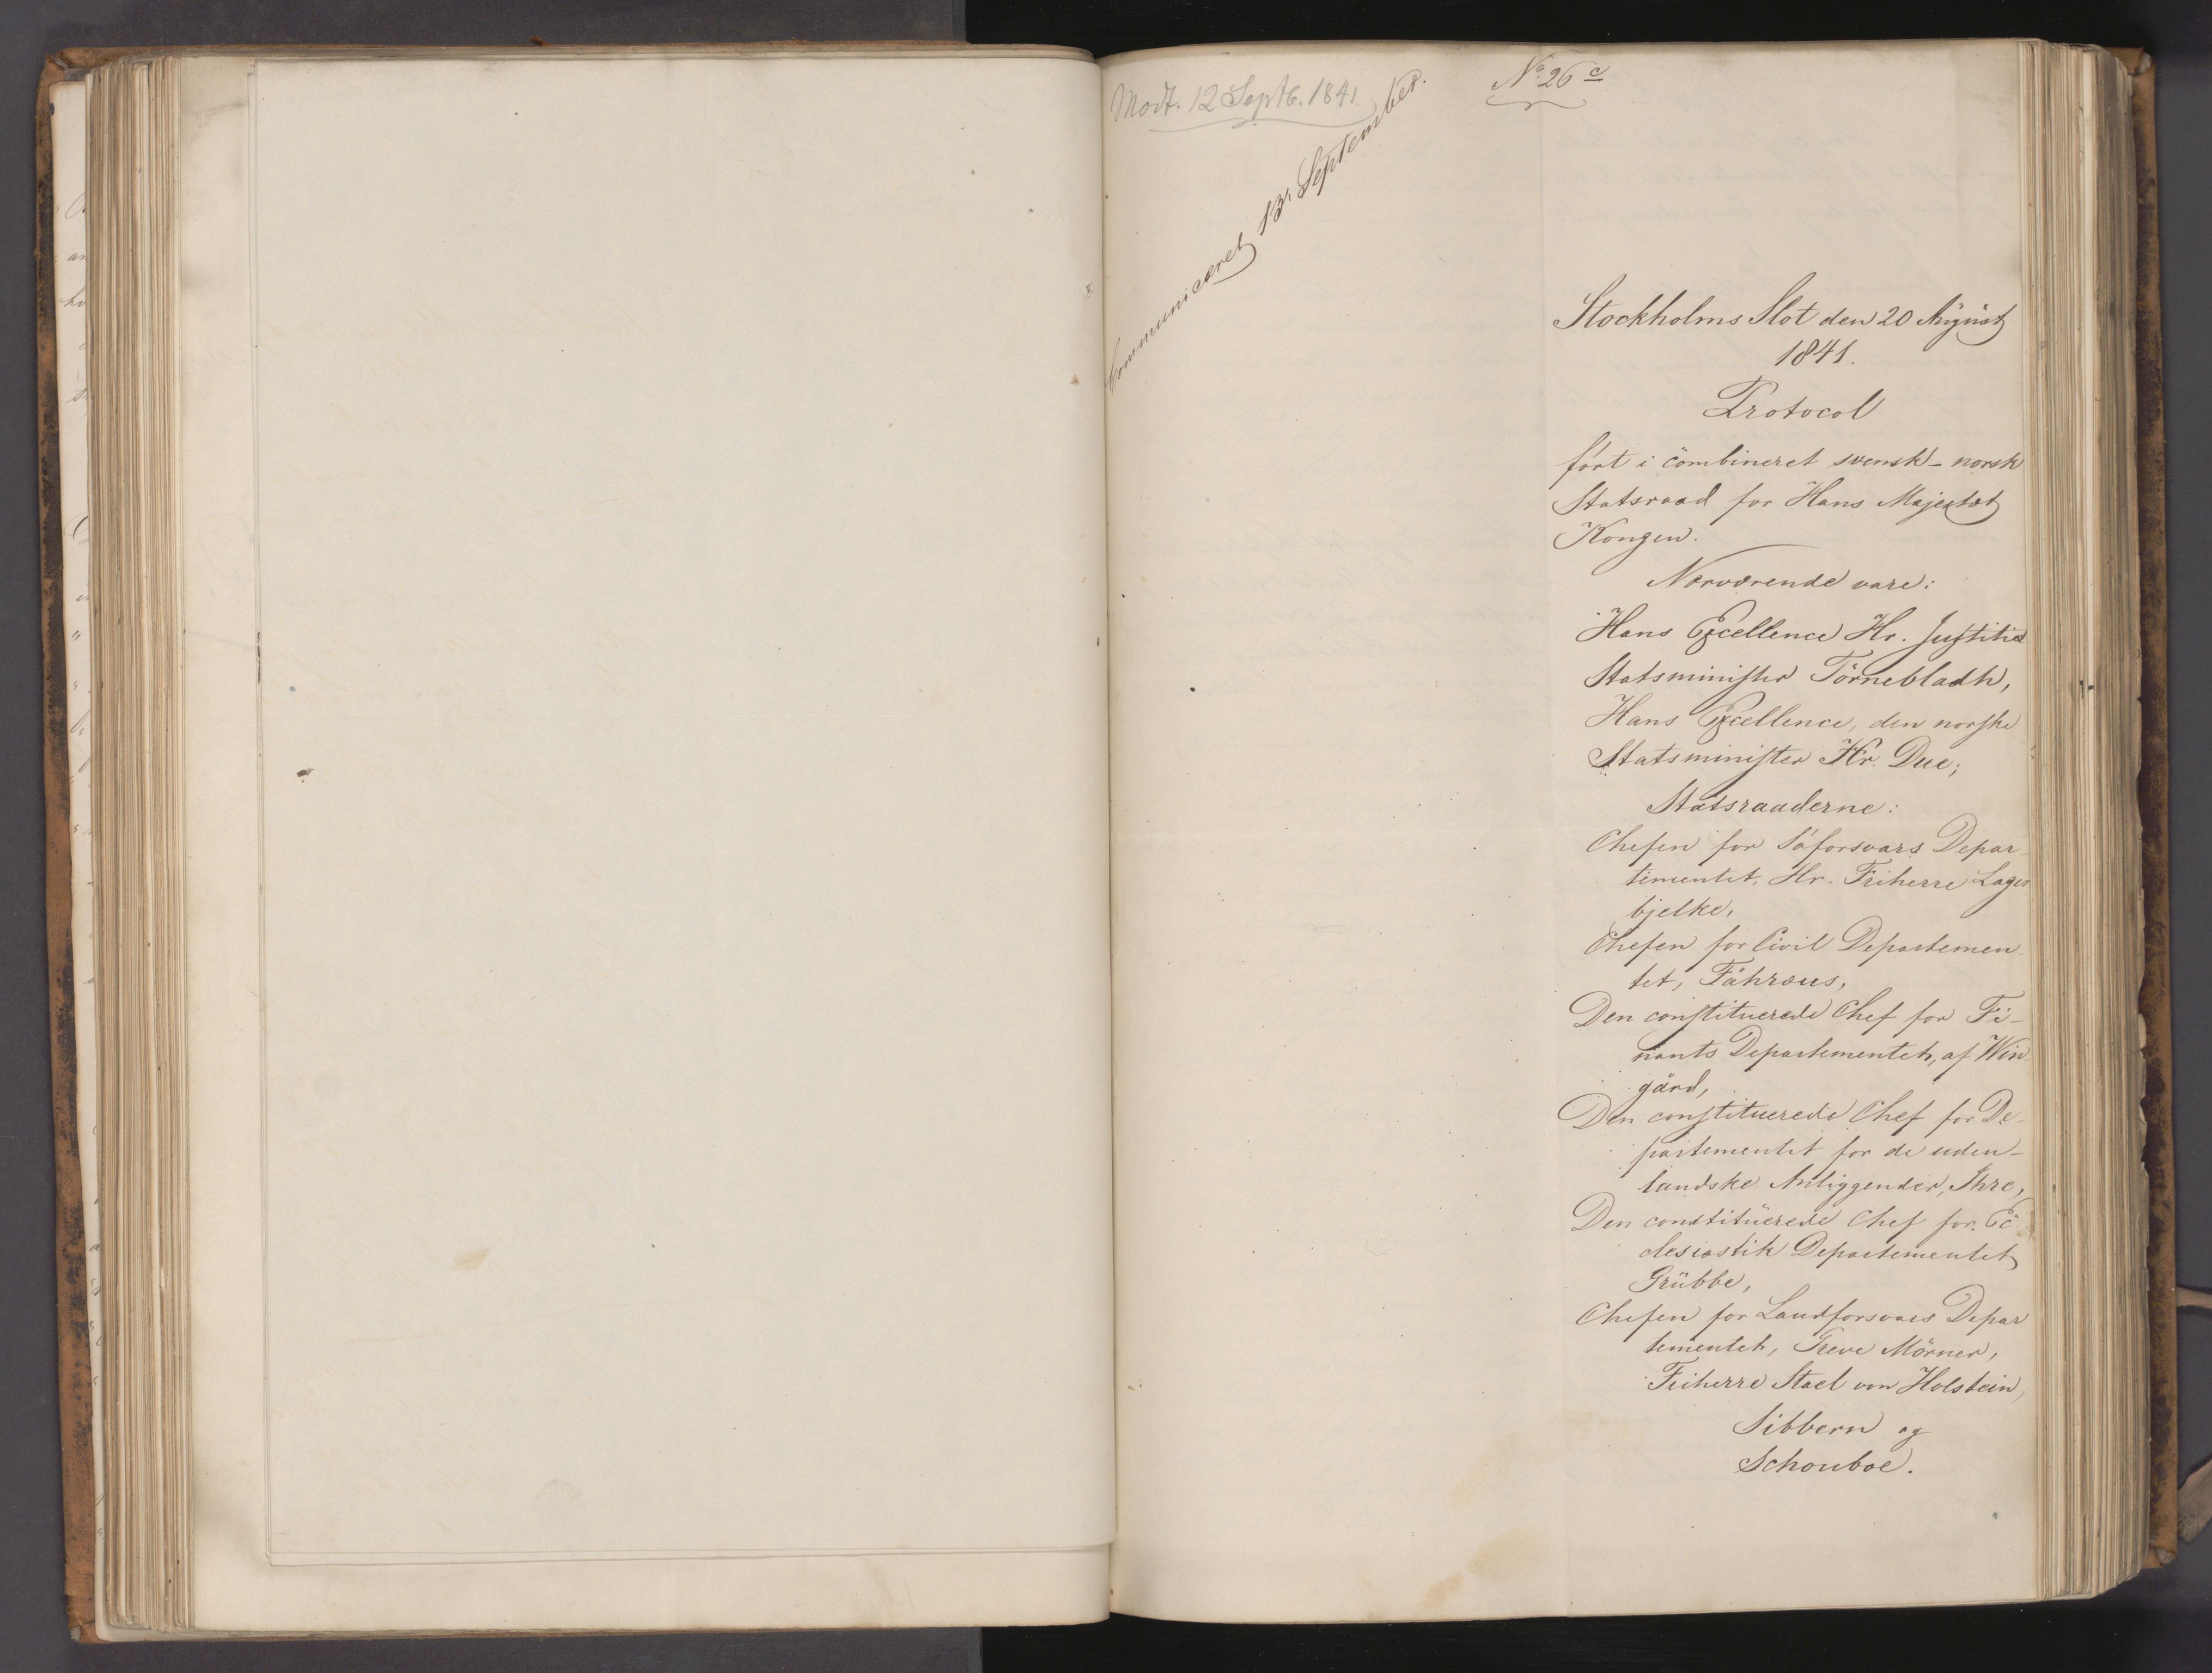 Modt. 12 Septb. 1841.
Communiceret 13de September.
No 26 c
Stockholms Slot den 20 August
1841.
Protocol
ført i combineret svensk-norsk
Statsraad for Hans Majestæt
Kongen.
Nærværende vare:
Hans Excellence Hr. Justitie
Statsminister Törnebladh,
Hans Excellence, den norske
Statsminister Hr. Due;
Statsraaderne:
Chefen for Søforsvars Depar-
tementet, Hr. Friherre Lager
bjelke,
Chefen for Civil Departemen-
tet, Fåhræus,
Den constituerede Chef for Fi-
nants Departementet, af Win-
gård,
Den constituerede Chef for De-
partementet for de uden-
landske Anliggender, Ihre,
Den constituerede Chef for Ec-
clesiastik Departementet
Grubbe,
Chefen for Landforsvars Depar
tementet, Greve Mörner,
Friherre Stael von Holstein,
Sibbern og
Schouboe.